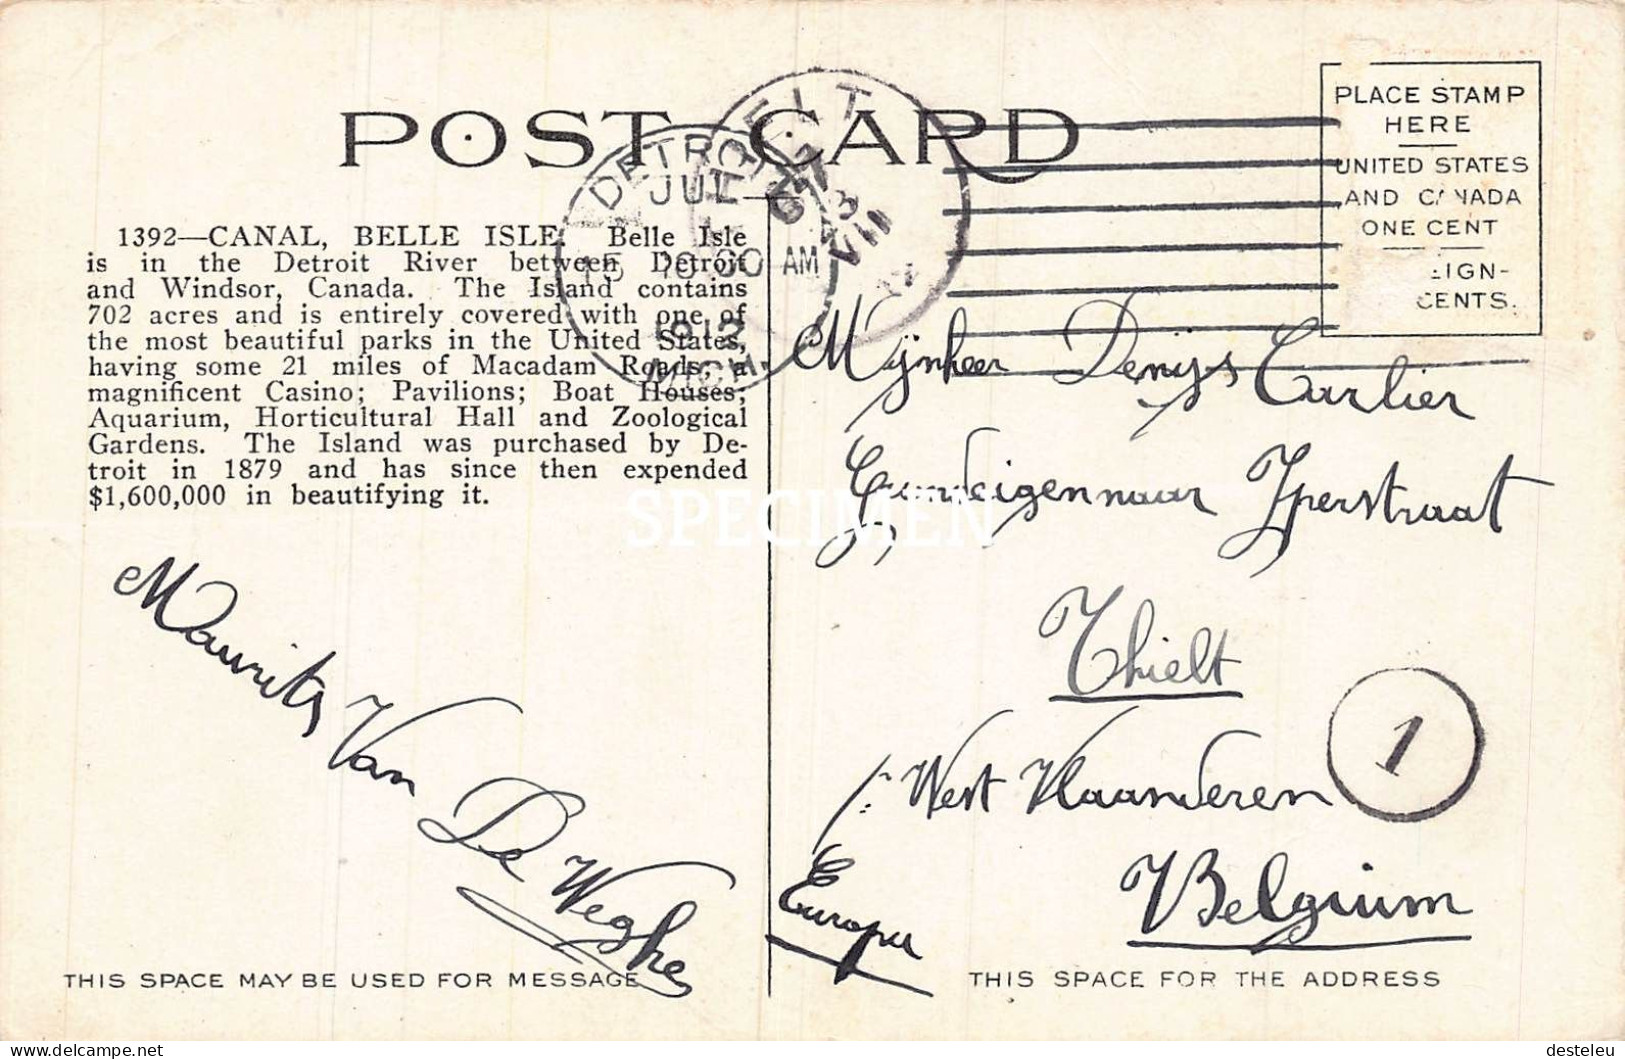 POST CARD
DETROIT
JUL
15 10 00 AM
1912
MICH.
PLACE STAMP
HERE
UNITED STATES
AND CANADA
ONE CENT
EIGN-
CENTS.
1392—CANAL, BELLE ISLE. Belle Isle
is in the Detroit River between Detroit
and Windsor, Canada. The Island contains
702 acres and is entirely covered with one of
the most beautiful parks in the United States,
having some 21 miles of Macadam Roads; a
magnificent Casino; Pavilions; Boat Houses;
Aquarium, Horticultural Hall and Zoological
Gardens. The Island was purchased by De-
troit in 1879 and has since then expended
$1,600,000 in beautifying it.
Maurits Van De Weghe
THIS SPACE MAY BE USED FOR MESSAGE
Mijnheer Denys Carlier
Grondeigennaar Yperstraat
Thielt
West Vlaanderen
1
Europa
Belgium
THIS SPACE FOR THE ADDRESS
SPECIMEN
delcampe.net
desteleu